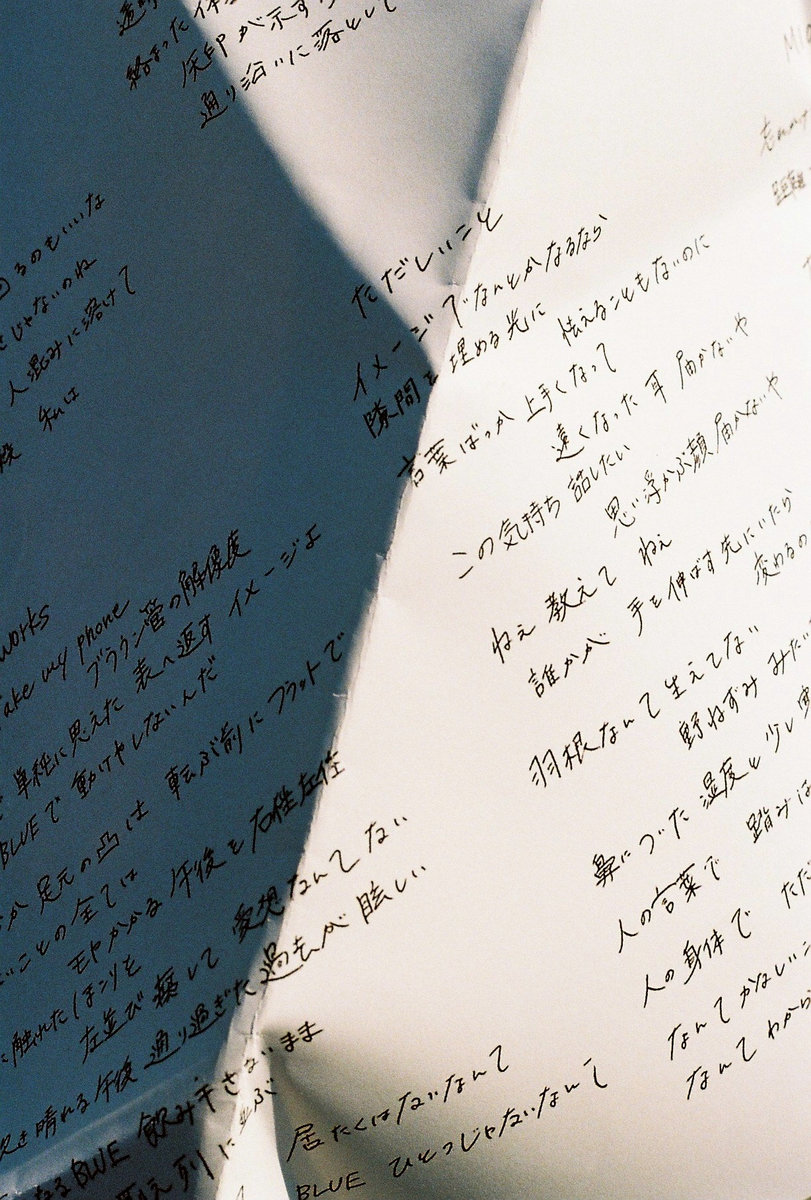 絡まった体
矢印が示す
通り沿いに落として
るのもいいな
じゃないのね
人混みに溶けて
私は
works
Take my phone
ブラウン管の解像度
単純に思えた 表へ返す イメージよ
BLUEで 動けやしないんだ
足元の凸は 転ぶ前に フラットで
ことの全ては
モヤかかる 午後を右往左往
触れたほこりを
左並び 癖して 愛想なんてない
晴れる午後 通り過ぎた過去が 眩しい
なるBLUE 飲み干さないまま
列に並ぶ
ただしいこと
イメージでなんとかなるなら
隙間を埋める光に 怯えることもないのに
言葉ばっか 上手くなって
遠くなった耳 届かないや
この気持ち 話したい
思い浮かぶ顔 届かないや
ねえ 教えて ねえ
誰かが 手を伸ばす先にいたら
変めるの
羽根なんて生えてない
野ねずみ みたい
鼻につづいた 湿度と 少し
人の言葉で 踏みは
人の身体で ただ
なんてかなしいこ
なんてわから
居たくはないなんて
BLUE ひとつじゃないなんて
距離